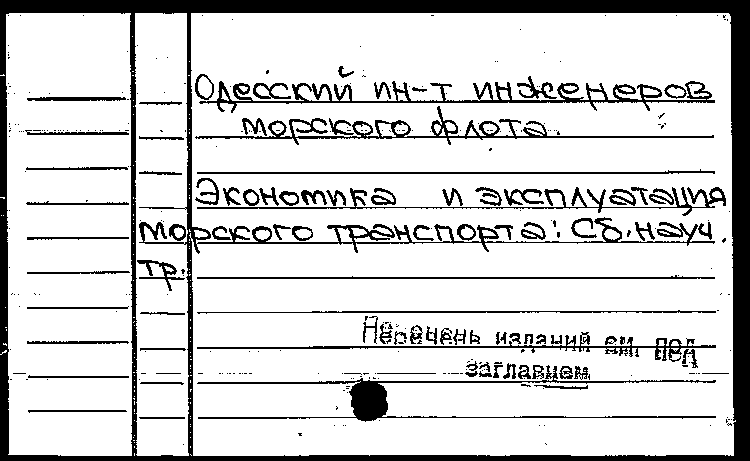 Одесский ин-т инженеров
морского флота.
Экономика и эксплуатация
морского транспорта: Сб. науч.
тр.
Перечень изданий см. под
заглавием